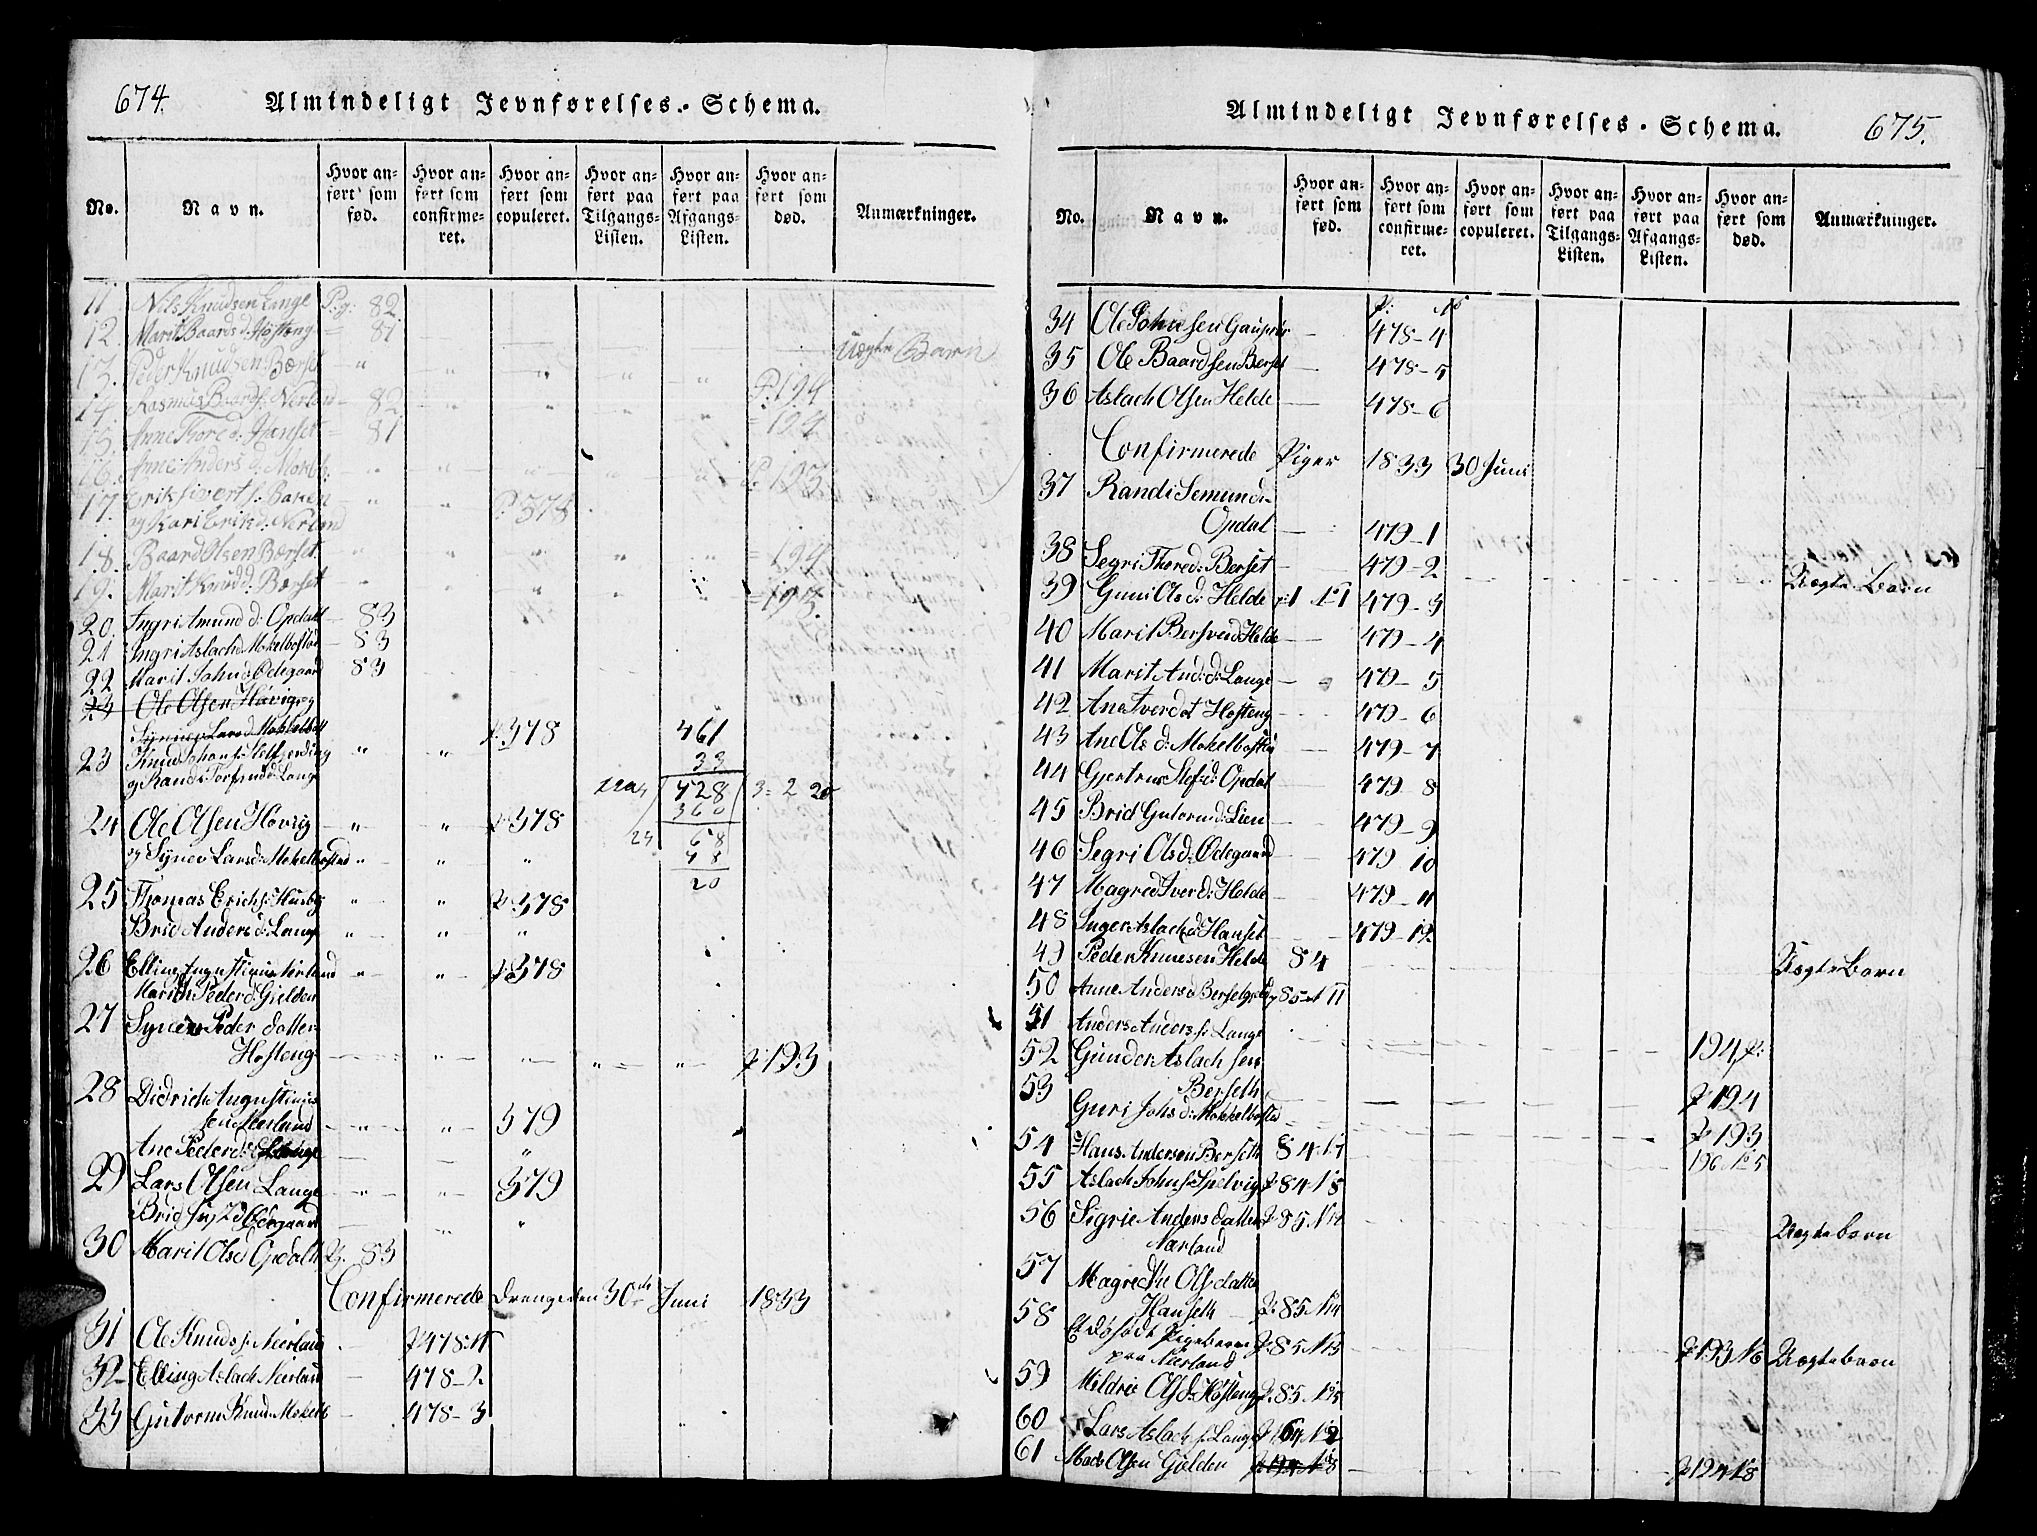 674.
Almindeligt Jevnførelses-Schema.
No.
Navn.
Hvor anført som fød.
Hvor anført som confirmeret.
Hvor anført som copuleret.
Hvor anført paa Tilgangs-Listen.
Hvor anført paa Afgangs-Listen.
Hvor anført som død.
Anmærkninger.
11 Nils Knudsen Lange Pag: 82
12. Marit Baards d: Høsteng = 81
13. Peder Knudsen Bærset " " " " " Uægte Barn
14. Rasmus Baards: Nerland - 82 P. 194
15. Anne Thore d: Hanset = 81 = 194
16. Anne Anders d: Mokelb: " " P. 193
17. Erik Sivert s: Baren " " P 378
og Kari Erik d: Nerland
18. Baard Olsen Bærset " " " " " = 194
19. Marit Knud d: Bærset " " " " = 193.
20. Ingri Amund d: Opdall - 83
21 Ingri Aslach d: Mokelbostad - 83
22 Marit John d: Ødegaard 83
23 Ole Olsen Høvig og
Synnev Lars d: Mokkelbost P 378 461
23 Knud Johans: Helfjerding " " 33
og Randi Torfind d: Lange 428 3 = 2 20
360
24 Ole Olsen Høvig - " - " P 378 24 68
og Synev Lars d: Mokelbostad " " " 48
20
25 Thomas Erichs: Huusby " " P 378
Brid Anders d: Lange " " "
26 Elling Augustinus Nerland - " - " P 378
Marith Peder d: Gielden
27 Synev Peder datter
Hosteng " " " " P. 193
28 Didrich Augustinus
sen Neerland - " - " - 379
Ane Peder d: Lange "
29 Lars Olsen Lange - " - " - 379
Brid d: Ødegaard " "
30 Marit Ols d Opdall P. 83
Confirmerede Drenge den 30te Juni 1833
31 Ole Knuds s: Neerland P 478-1
32 Elling Aslach Neerland - 478-2
33 Gutorm Knud: Mokelb - 478-3
Almindeligt Jevnførelses-Schema.
675.
No.
Navn.
Hvor anført som fød.
Hvor anført som confirmeret.
Hvor anført som copuleret.
Hvor anført paa Tilgangs-Listen.
Hvor anført paa Afgangs-Listen.
Hvor anført som død.
Anmærkninger.
P: No
34 Ole Johnsen Gaupset - 478-4
35 Ole Baardsen Berset - 478-5
36 Aslach Olsen Helde - 478-6
Confirmerede Piger 1833 30 Juni
37 Randi Semund d:
Opdal - 479-1
38 Segri Thore d: Berset - 479-2
39 Guni Ols d: Helde 479-3 Uægte Barn
40 Marit Bersvend Helde - 479-4
41 Marit And: d: Lange - 479-5
42 Ana Iver dat Hosteng - 479-6
43 Ane Ols d: Mokelbostad - 479-7
44 Gjertrue Stef: d: Opdal - 479-8
45 Brid Gutorm d: Lien - 479-9
46 Segri Ols d: Ødegaard - 479-10
47 Magred Iver d: Helde - 479-11
48 Inger Aslach d: Hanset - 479-12
49 Peder Knutsen Helde 84 Uægte Barn
50 Anne Anders d: Berset 85 N 11
51 Anders Anders s: Lange 194 P:
52 Gunder Aslach sen
Berseth P 194
53 Guri Johs d: Mokkelbostad P 193
54 Hans Andersen Berseth 84 N 7 196 No 5
55 Aslach Johns: Spelvig P 84 N 8
56 Sigrie Anders datter P 85 N 14 Uægte barn
Nærland
57 Magrethe Ols datter
Hanseth P. 85 N 14
58 Et dødfødt Pigebarn P. 85 N 13 P 193 N 6 Uægte barn
paa Neerland
59 Mildrie Ols d: Høsteng P. 85 No 15
60 Lars Aslach s: Lange
61 Mads Olsen Gielden P 194 N 8 P 194 N 8